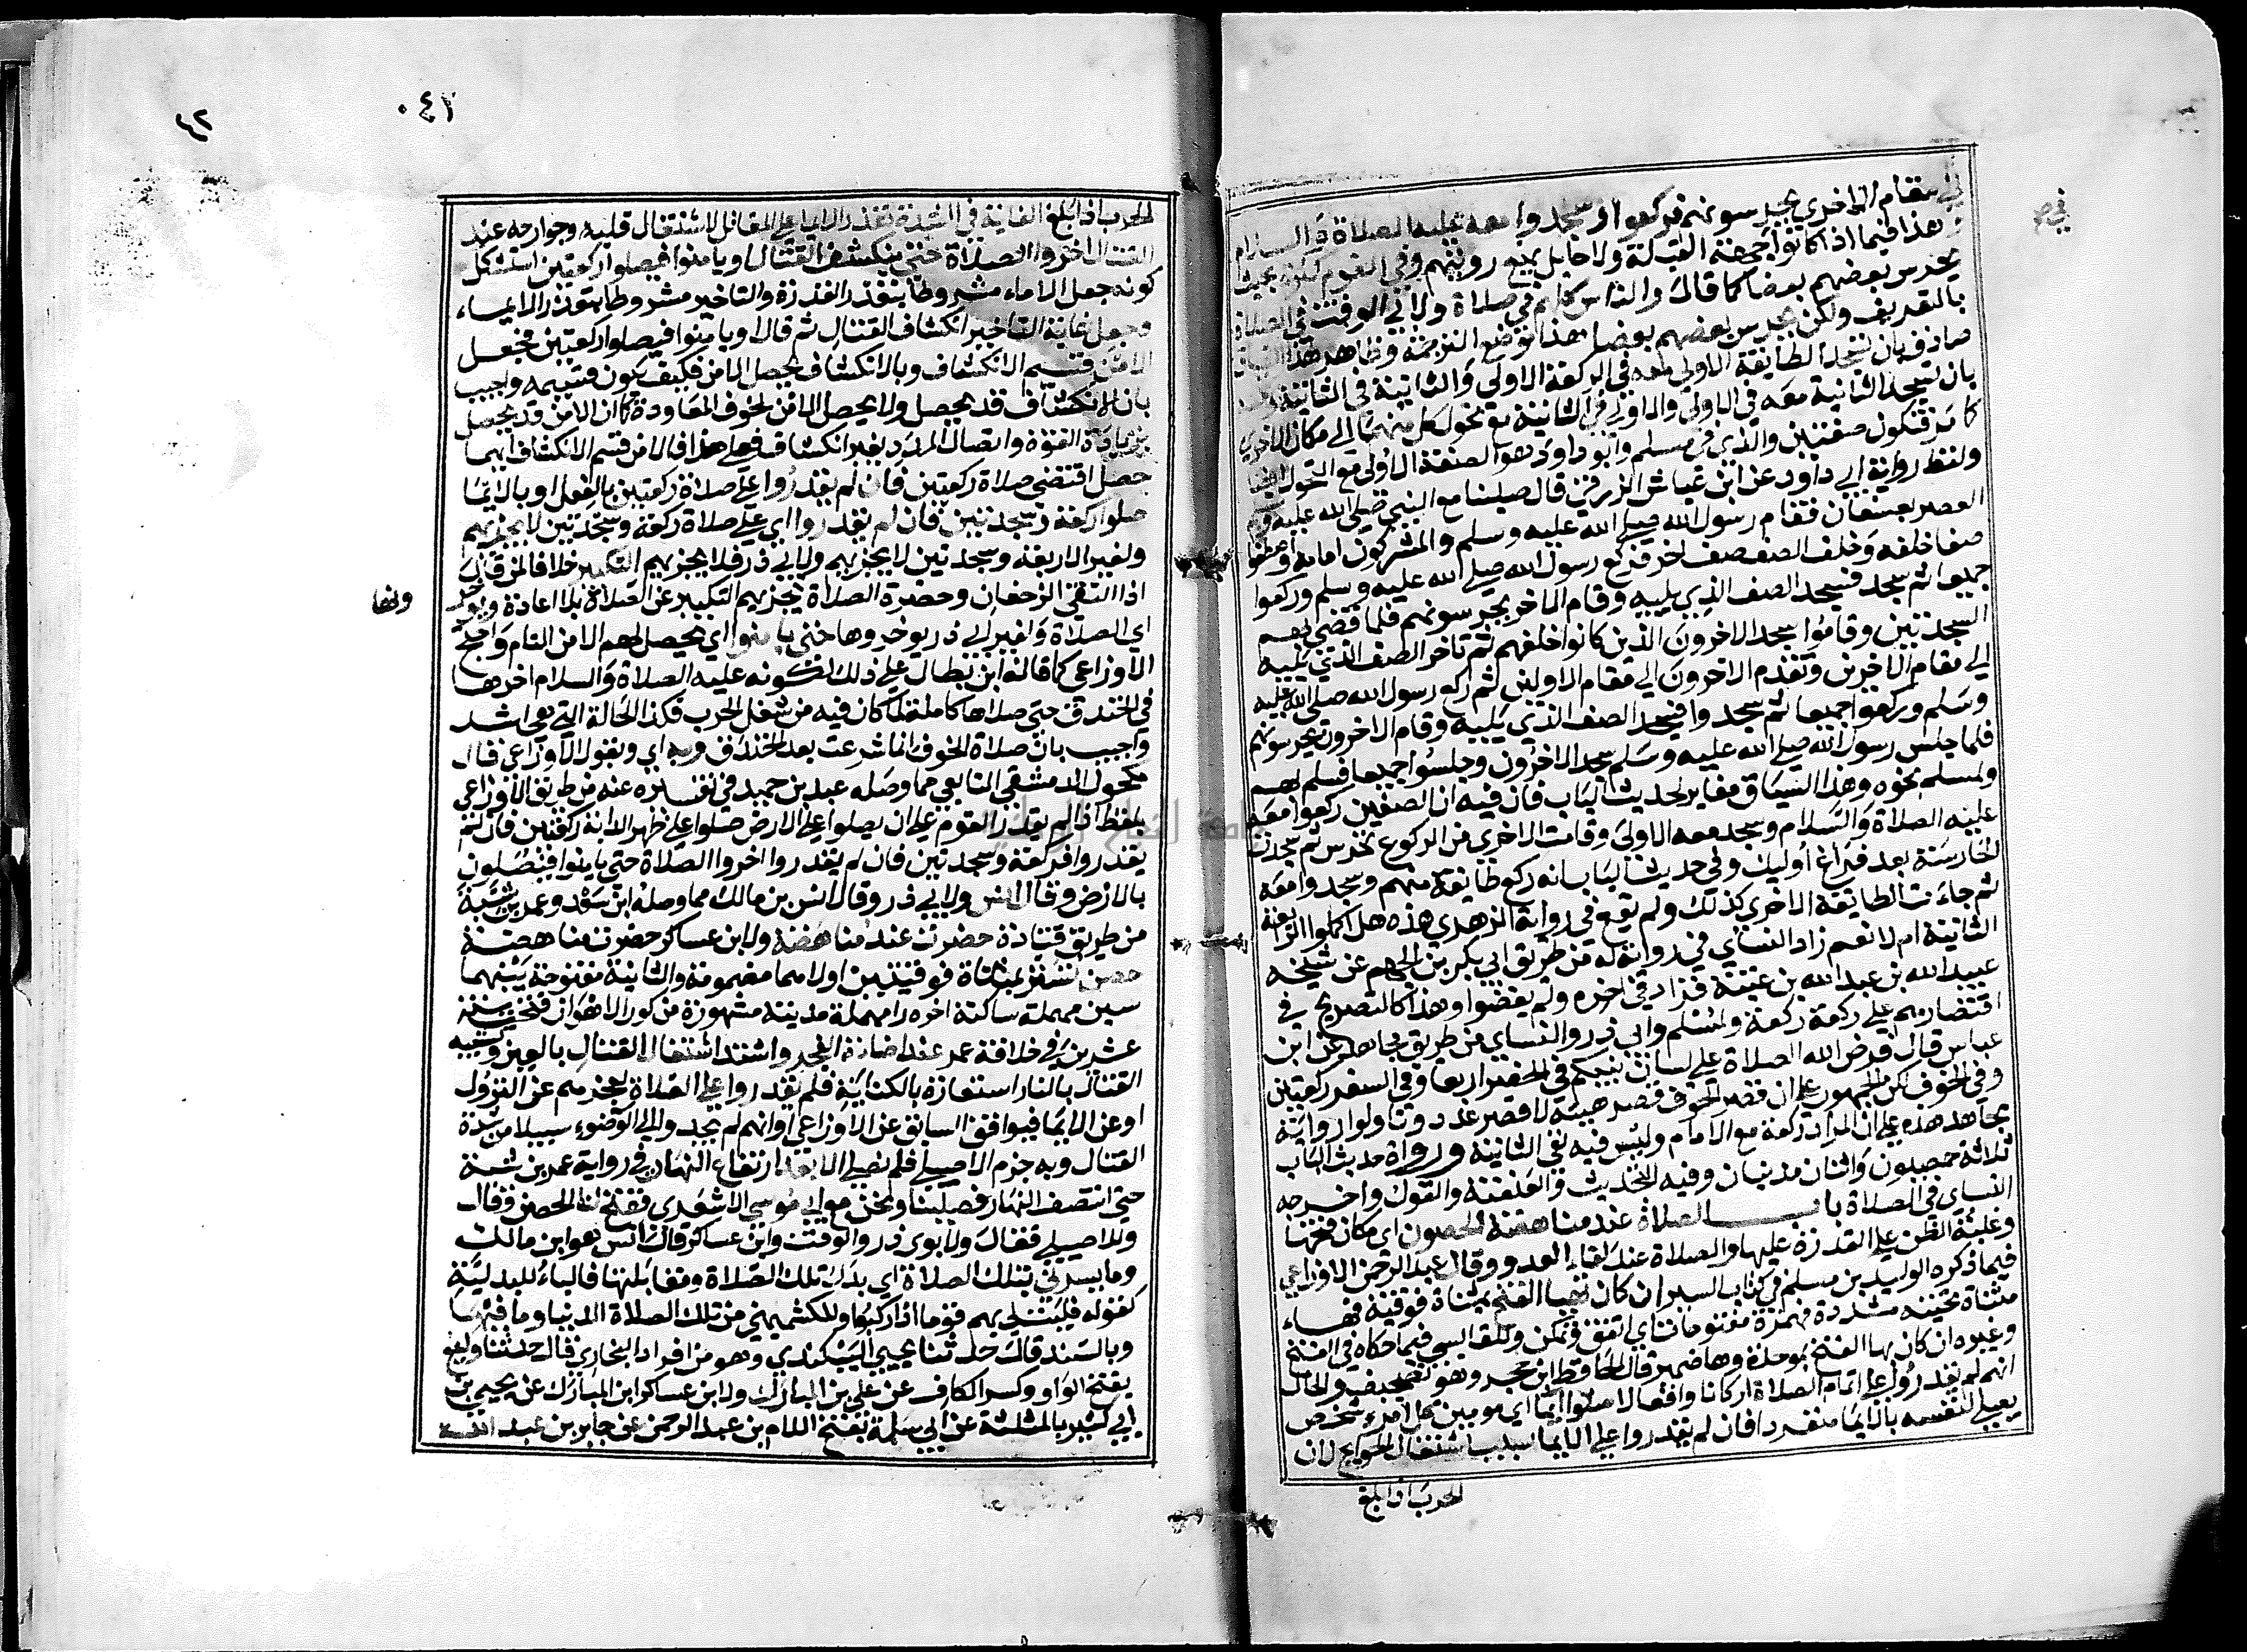 في مقام الاخري يحرسونهم فركعوا وسجدوا معه عليه الصلاة والسلام
هذا فيما اذا كانوا في جهة القبلة ولا حايل يمنع رويتهم وفي القوم كثرة بحيث
يحرس بعضهم بعضا كما قال والناس كلهم في صلاة ولابي الوقت في الصلاة
بالتعريف ولكن يحرس بعضهم بعضا هذا موضع الترجمة وظاهر هذا السياق
صادق بان تسجد الطايفة الاولي معه في الركعة الاولي والثانية في الثانية
بان تسجد الثانية معه في الاولي والاولي في الثانية مع تحول كل منهما الي مكان الاخري
كما مر فتكون صفتين والذي في مسلم وابو داود هو الصفة الاولي مع التحول
ولفظ رواية ابي داود عن ابن عياش الزرقي قال صلينا مع النبي صلي الله عليه
العصر بعسفان فقام رسول الله صلي الله عليه وسلم والمشركون امامه
صفا خلفه وخلف الصف صف اخر فركع رسول الله صلي الله عليه وسلم وركعوا
جميعا ثم سجد فسجد الصف الذي يليه وقام الاخر يحرسونهم فلما قضي بهم
السجدتين وقاموا سجد الاخرون الذين كانوا خلفهم ثم تاخر الصف الذي يليه
الي مقام الاخرين وتقدم الاخرون الي مقام الاولين ثم ركع رسول الله صلي الله عليه
وسلم وركعوا جميعا ثم سجد وا فسجد الصف الذي يليه وقام الاخرون يحرسونهم
فلما جلس رسول الله صلي الله عليه وسلم سجد الاخرون وجلسوا جميعا فسلم بهم
ولمسلم نحوه وهذا السياق مغاير لحديث الباب فان فيه ان الصفين ركعوا معه
عليه الصلاة والسلام وسجد معه الاولي وقامت الاخري من الركوع تحرس ثم سجدت
الحارسة بعد فراغ اوليك وفي حديث الباب انه ركع طايفة منهم وسجدوا معه
ثم جاءت الطايفة الاخري كذلك ولم يقع في رواية الزهري هذه هل اكملوا الركعة
الثانية ام لا نعم زاد النساي في رواية له من طريق ابي بكر بن الجهم عن شيخه
عبيد الله بن عبد الله بن عتبة فزاد في اخره ولم يقضوا وهذا كالتصريح في
اقتصارهم علي ركعة ركعة ولمسلم وابي ذر والنساي من طريق مجاهد عن ابن
عباس قال فرض الله الصلاة علي لسان نبيكم في الحضر اربعا وفي السفر ركعتين
وفي الخوف لكن الجمهور علي ان قصر الخوف قصر هيئة لا قصر عدد وتاولوا رواية
مجاهد هذه علي ان المراد ركعة مع الامام وليس فيه نفي الثانية ورواة حديث الباب
ثلاثة حمصيون واثنان مدنيان وفيه التحديث والعنعنة والقول واخرجه
النساي في الصلاة باب الصلاة عند مناهضة الحصون اي مكان فتحها
وغلبة الظن علي القدرة عليها والصلاة عند لقاء العدو وقال عبد الرحمن الاوزاعي
فيما ذكره الوليد بن مسلم في كتاب السير ان كان تهيا الفتح بمثناة فوقية فهاء
مثناة تحتية مشددة فهمزة مفتوحات اي اتفق وتمكن وللقابسي فيما حكاه في الفتح
وغيره ان كان بها الفتح بموحدة وها ضمير قال الحافظ ابن حجر وهو تصحيف والحال
انهم لم يقدروا علي اتمام الصلاة اركانا وافعالا صلوا ايما اي موميين كل امرء شخص
يصلي لنفسه بالايما منفردا فان لم يقدروا علي الايما بسبب اشتغال الجوارح لان
الحرب اذا بلغ
٤٢
٠٤٢
الحرب اذا بلغ الغاية في الشدة تعذر الايما علي المقاتل لاشتغال قلبه وجوارحه عند
القتال اخروا الصلاة حتي ينكشف القتال او يامنوا فيصلوا ركعتين استشكل
كونه جعل الاماء مشروطا بتعذر القدرة والتاخير مشروطا بتعذر الايماء
وجعل غاية التاخير انكشاف القتال ثم قال او يامنوا فيصلوا ركعتين فجعل
الامن قسيم الانكشاف وبالانكشاف يحصل الامن فكيف يكون قسيمه واجيب
بان الانكشاف قد يحصل ولا يحصل الامن لخوف المعاودة كما ان الامن قد يحصل
بزيادة القوة واتصال المدد بغير انكشاف فعلي هذا فالامن قسيم الانكشاف ايهما
حصل اقتضي صلاة ركعتين فان لم يقدروا علي صلاة ركعتين بالفعل او بالايما
صلوا ركعة وسجدتين فان لم يقدروا اي علي صلاة ركعة وسجدتين لا يجزيهم
ولغير الاربعة وسجدتين لا يجزيهم ولابي ذر فلا يجزيهم التكبير خلافا لمن قال
اذا التقي الزحفان وحضرة الصلاة يجزيهم التكبير عن الصلاة بلا اعادة ويوخر
ونها
اي الصلاة ولغير ابي ذر يوخروها حتي يامنوا اي يحصل لهم الامن التام واحتج
الاوزاعي كما قاله ابن بطال علي ذلك بكونه عليه الصلاة والسلام اخرها
في الخندق حتي صلاها كاملة لما كان فيه من شغل الحرب فكذا الحالة التي هي اشد
واجيب بان صلاة الخوف انما شرعت بعد الخندق وبه اي وبقول الاوزاعي قال
مكحول الدمشقي التابعي مما وصله عبد بن حميد في تفسيره عنه من طريق الاوزاعي
بلفظ اذا لم يقدر القوم علي ان يصلوا علي الارض صلوا علي ظهر الدابة ركعتين فان لم
يقدروا فركعة وسجدتين فان لم يقدروا اخروا الصلاة حتي يامنوا فيصلون
بالارض وقال انس ولابي ذر وقال انس بن مالك مما وصله ابن سعد وعمر بن شبة
من طريق قتادة حضرت عند مناهضة ولابن عساكر حضرت مناهضة
حصن تستر بمثناة فوقيتين اولاهما مضمومة والثانية مفتوحة بينهما
سين مهملة ساكنة اخره را مهملة مدينة مشهورة من كور الاهواز فتحت سنة
عشرين في خلافة عمر عند اضاءة الفجر واشتد اشتعال القتال بالعين وتشبيه
القتال بالنار استعارة بالكناية فلم يقدروا علي الصلاة لعجزهم عن النزول
او عن الايما فيوافق السابق عن الاوزاعي او انهم لم يجدوا الي الوضوء سبيلا من شدة
القتال وبه جزم الاصيلي فلم نصلي الا بعد ارتفاع النهار في رواية عمر بن شبة
حتي انتصف النهار فصليناها ونحن مع ابي موسي الاشعري ففتح لنا الحصن وقال
وللاصيلي فقال ولابوي ذر والوقت وابن عساكر قال انس هو ابن مالك
وما يسرني بتلك الصلاة اي بدل تلك الصلاة ومقابلتها فالباء للبدلية
كقوله فليت لي بهم قوما اذا ركبوا وللكشميهني من تلك الصلاة الدنيا وما فيها
وبالسند قال حدثنا يحيي البيكندي وهو من افراد البخاري قال حدثنا وكيع
بفتح الواو وكسر الكاف عن علي بن المبارك ولابن عساكر ابن المبارك عن يحيي بن
ابي كثير بالمثلثة عن ابي سلمة بفتح اللام بن عبد الرحمن عن جابر بن عبد الله